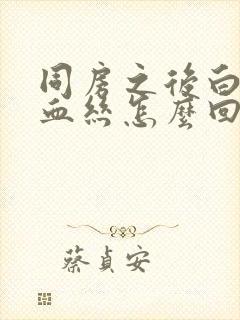 同房之後白
血絲怎麼回
蔡貞安